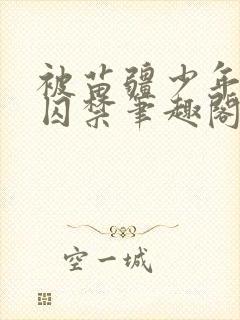 被苗疆少年
囚禁笔趣阁
空一城